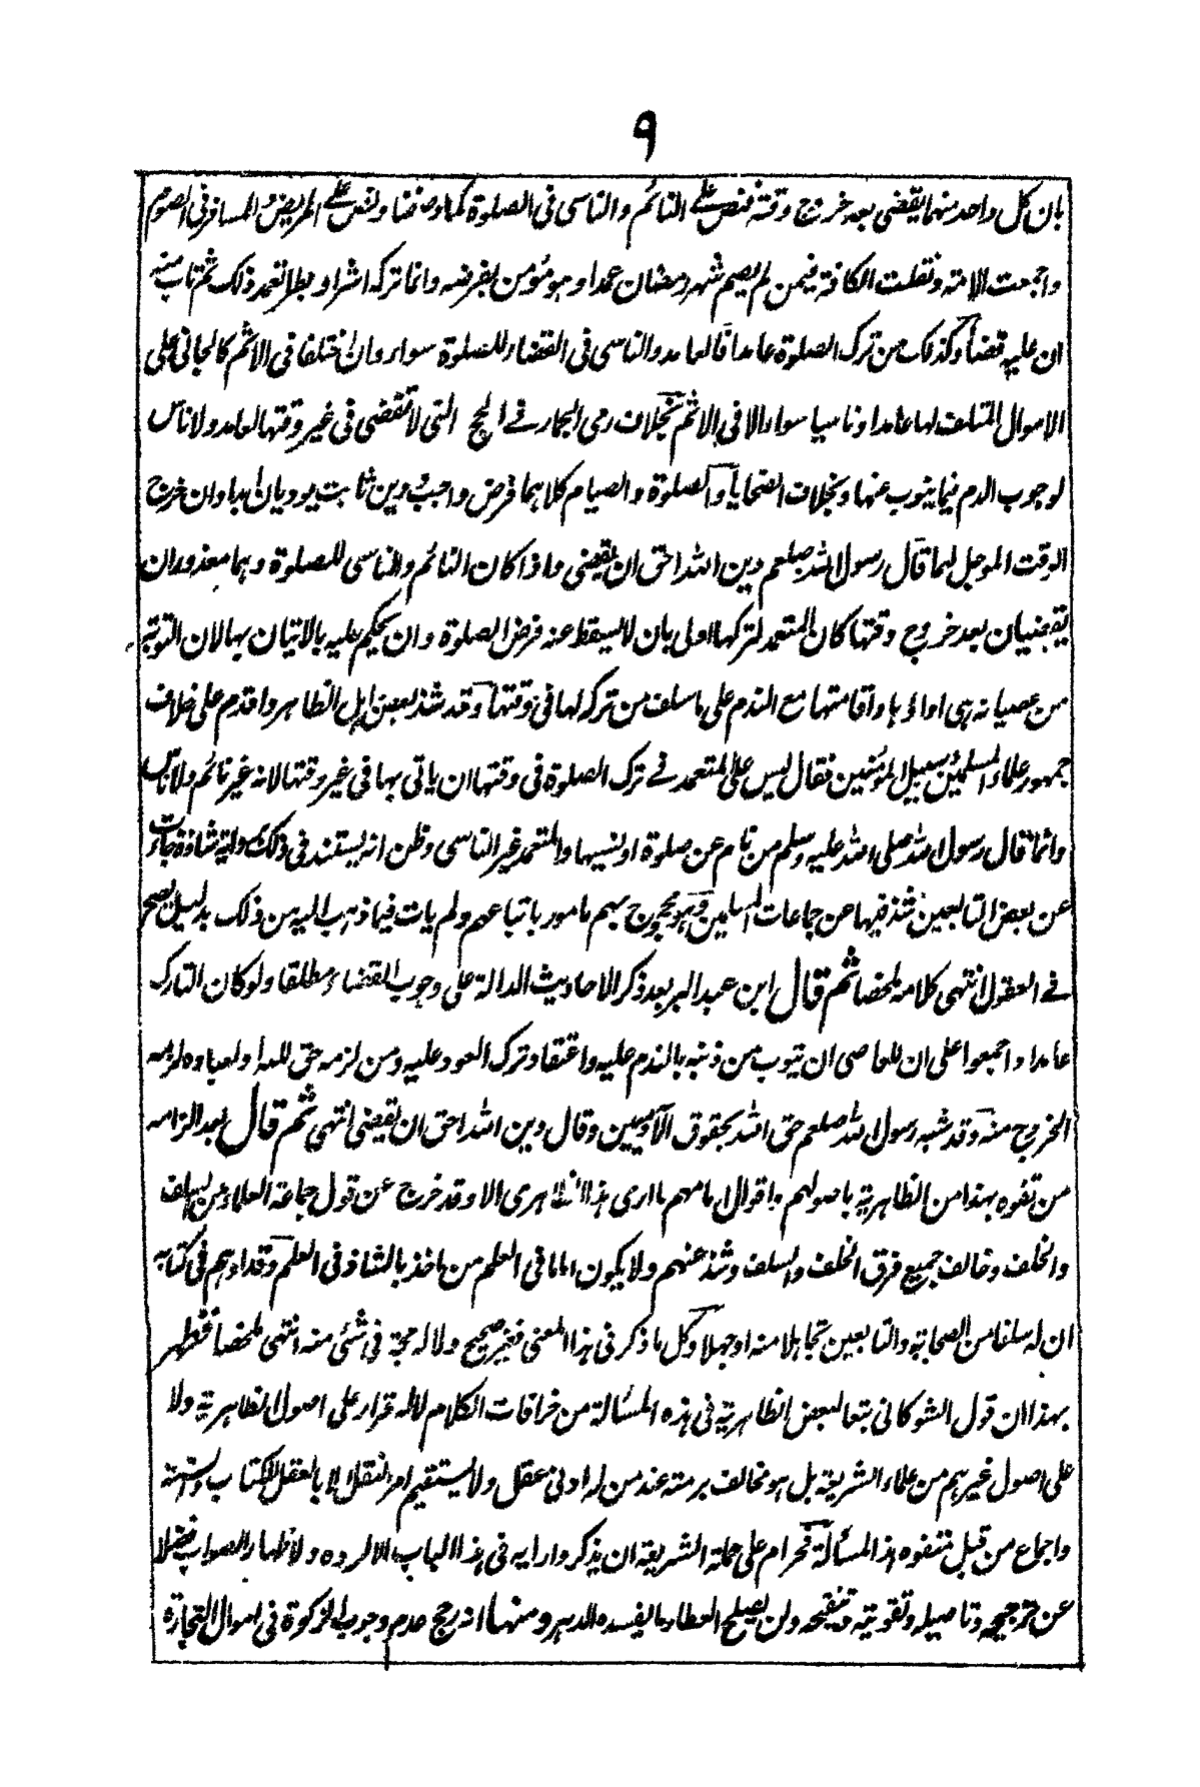 ٩
بان كل واحد منهما يقضى بعد خروج وقته فنص على النائم والناسى فى الصلوة كما وصفنا ونص على المريض والمسافر فى الصوم
واجمعت الامة ونقلت الكافة فيمن لم يصم شهر رمضان عمدا وهو مؤمن بفرضه وانما تركه اشرا وبطرا تعمد ذلك ثم تاب منه
ان عليه قضاءه وكذلك من ترك الصلوة عامدا فالعامد والناسى فى القضاء للصلوة سواء وان اختلفا فى الاثم كالجانى على
الاموال المتلف لها عامدا وناسيا سواء الا فى الاثم بخلاف رمى الجمار فى الحج التى لا تقضى فى غير وقتها لعامد ولا ناس
لوجوب الدم فيما ينوب عنها وبخلاف الضحايا والصلوة والصيام كلاهما فرض واجب ودين ثابت يوديان ابدا وان خرج
الوقت الموجل لهما قال رسول الله صلعم دين الله احق ان يقضى واذا كان النائم والناسى للصلوة وهما معذوران
يقضيان بعد خروج وقتها كان المتعمد لتركها اولى بان لا يسقط عنه فرض الصلوة وان يحكم عليه بالاتيان بها لان التوبة
من عصيانه هى اداؤها واقامتها مع الندم على ما سلف من تركه لها فى وقتها وقد شذ بعض اهل الظاهر واقدم على خلاف
جمهور علماء المسلمين وسبيل المؤمنين فقال ليس على المتعمد فى ترك الصلوة فى وقتها ان ياتى بها فى غير وقتها لانه غير نائم ولا ناس
وانما قال رسول الله صلى الله عليه وسلم من نام عن صلوة او نسيها والمتعمد غير الناسى وظن انه يستند فى ذلك رواية شاذة جاءت
عن بعض التابعين شذ فيها عن جماعات المسلمين وهو محجوج بهم مامور باتباعهم ولم يات فيما ذهب اليه من ذلك بدليل يصح
فى العقول انتهى كلامه ملخصا ثم قال ابن عبد البر بعد ذكر الاحاديث الدالة على وجوب القضاء مطلقا ولو كان التارك
عامدا واجمعوا على ان للعاصى ان يتوب من ذنبه بالندم عليه واعتقاد ترك العود عليه ومن لزمه حق لله او لعباده لزمه
الخروج منه وقد شبه رسول الله صلعم حق الله بحقوق الآدميين وقال دين الله احق ان يقضى انتهى ثم قال بعد الزامه
من تفوه بهذا من الظاهرية باصولهم واقوال امامهم ما ارى هذا الظاهرى الا وقد خرج عن قول جماعة العلماء من السلف
والخلف وخالف جميع فرق الخلف والسلف وشذ عنهم ولا يكون اماما فى العلم من ياخذ بالشاذ فى العلم وقد اوهم فى كتابه
ان له سلفا من الصحابة والتابعين تجاهلا منه او جهلا وكل ما ذكر فى هذا المعنى فغير صحيح ولا له حجة فى شئ منه انتهى ملخصا فظهر
بهذا ان قول الشوكانى تبعا لبعض الظاهرية فى هذه المسألة من خرافات الكلام لا له قرار على اصول الظاهرية ولا
على اصول غيرهم من علماء الشريعة بل هو مخالف برمته عند من له ادنى عقل ولا يستقيم امر النقل الا بالعقل للكتاب والسنة
واجماع من قبل متفوه هذا المسألة فحرام على حملة الشريعة ان يذكروا رايه فى هذا الباب الا لرده ولاظهار الصواب فضلا
عن ترجيحه وتاصيله وتقويته وتنقيحه ولن يصلح العطار ما يفسده الدهر ومنها انه رجح عدم وجوب الزكوة فى اموال التجارة